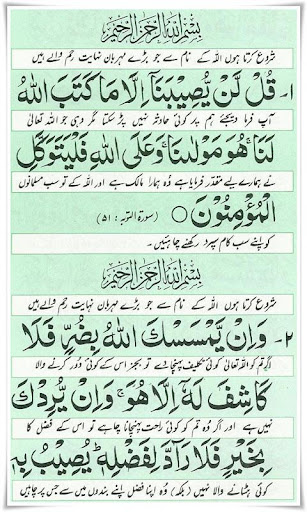 بِسْمِ اللهِ الرَّحْمٰنِ الرَّحِيْمِ
شروع کرتا ہوں اللہ کے نام سے جو بڑے مہربان نہایت رحم والے ہیں
۱- قُلْ لَّنْ يُّصِيْبَنَآ اِلَّا مَا كَتَبَ اللهُ
آپ فرما دیجئے ہم پر کوئی حادثہ نہیں پڑ سکتا مگر وہی جو اللہ تعالیٰ
لَنَا ۚ هُوَ مَوْلٰىنَا ۚ وَعَلَى اللهِ فَلْيَتَوَكَّلِ
نے ہمارے لیے مقدر فرمایا ہے وہ ہمارا مالک ہے اور اللہ کے تو سب مسلمانوں
الْمُؤْمِنُوْنَ ○ (سورۃ التوبہ : ۵۱)
کو اپنے سب کام سپرد رکھنے چاہئیں۔
بِسْمِ اللهِ الرَّحْمٰنِ الرَّحِيْمِ
شروع کرتا ہوں اللہ کے نام سے جو بڑے مہربان نہایت رحم والے ہیں
۲- وَاِنْ يَّمْسَسْكَ اللهُ بِضُرٍّ فَلَا
اگر تم کو اللہ تعالیٰ کوئی تکلیف پہنچاوے تو بجز اس کے کوئی دور کرنے والا
كَاشِفَ لَهٗٓ اِلَّا هُوَ ۚ وَاِنْ يُّرِدْكَ
نہیں ہے اور اگر وہ تم کو کوئی راحت پہنچانا چاہے تو اس کے فضل کا
بِخَيْرٍ فَلَا رَآدَّ لِفَضْلِهٖ ؕ يُصِيْبُ بِهٖ
کوئی ہٹانے والا نہیں (بلکہ) وہ اپنا فضل اپنے بندوں میں سے جس پر چاہیں